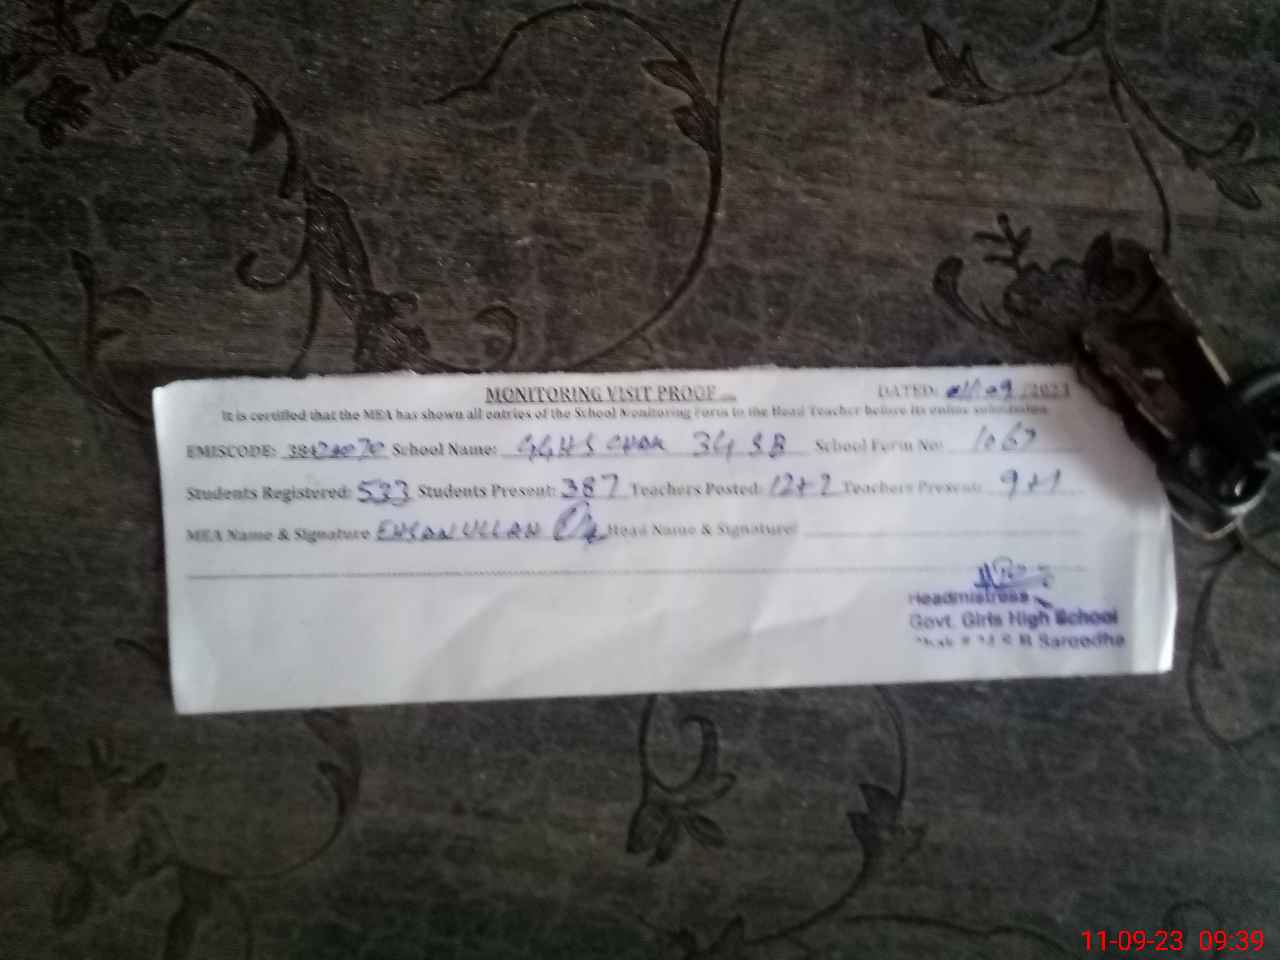 MONITORING VISIT PROOF DATED: 11/09/2023
It is certified that the MEA has shown all entries of the School Monitoring Form to the Head Teacher before its online submission.
EMISCODE: School Name: GGHS CHAK 34 SB School Form No: 1067
Students Registered: 533 Students Present: 387 Teachers Posted: 12+2 Teachers Present: 9+1
MEA Name & Signature EHSAN ULLAH Head Name & Signature:
Headmistress
Govt. Girls High School
Chak # 34 S B Sargodha
11-09-23 09:39